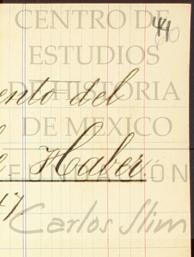 41
CENTRO DE
ESTUDIOS
DE HISTORIA
DE MEXICO
ento del
Haber
FUNDACIÓN
47
Carlos Slim